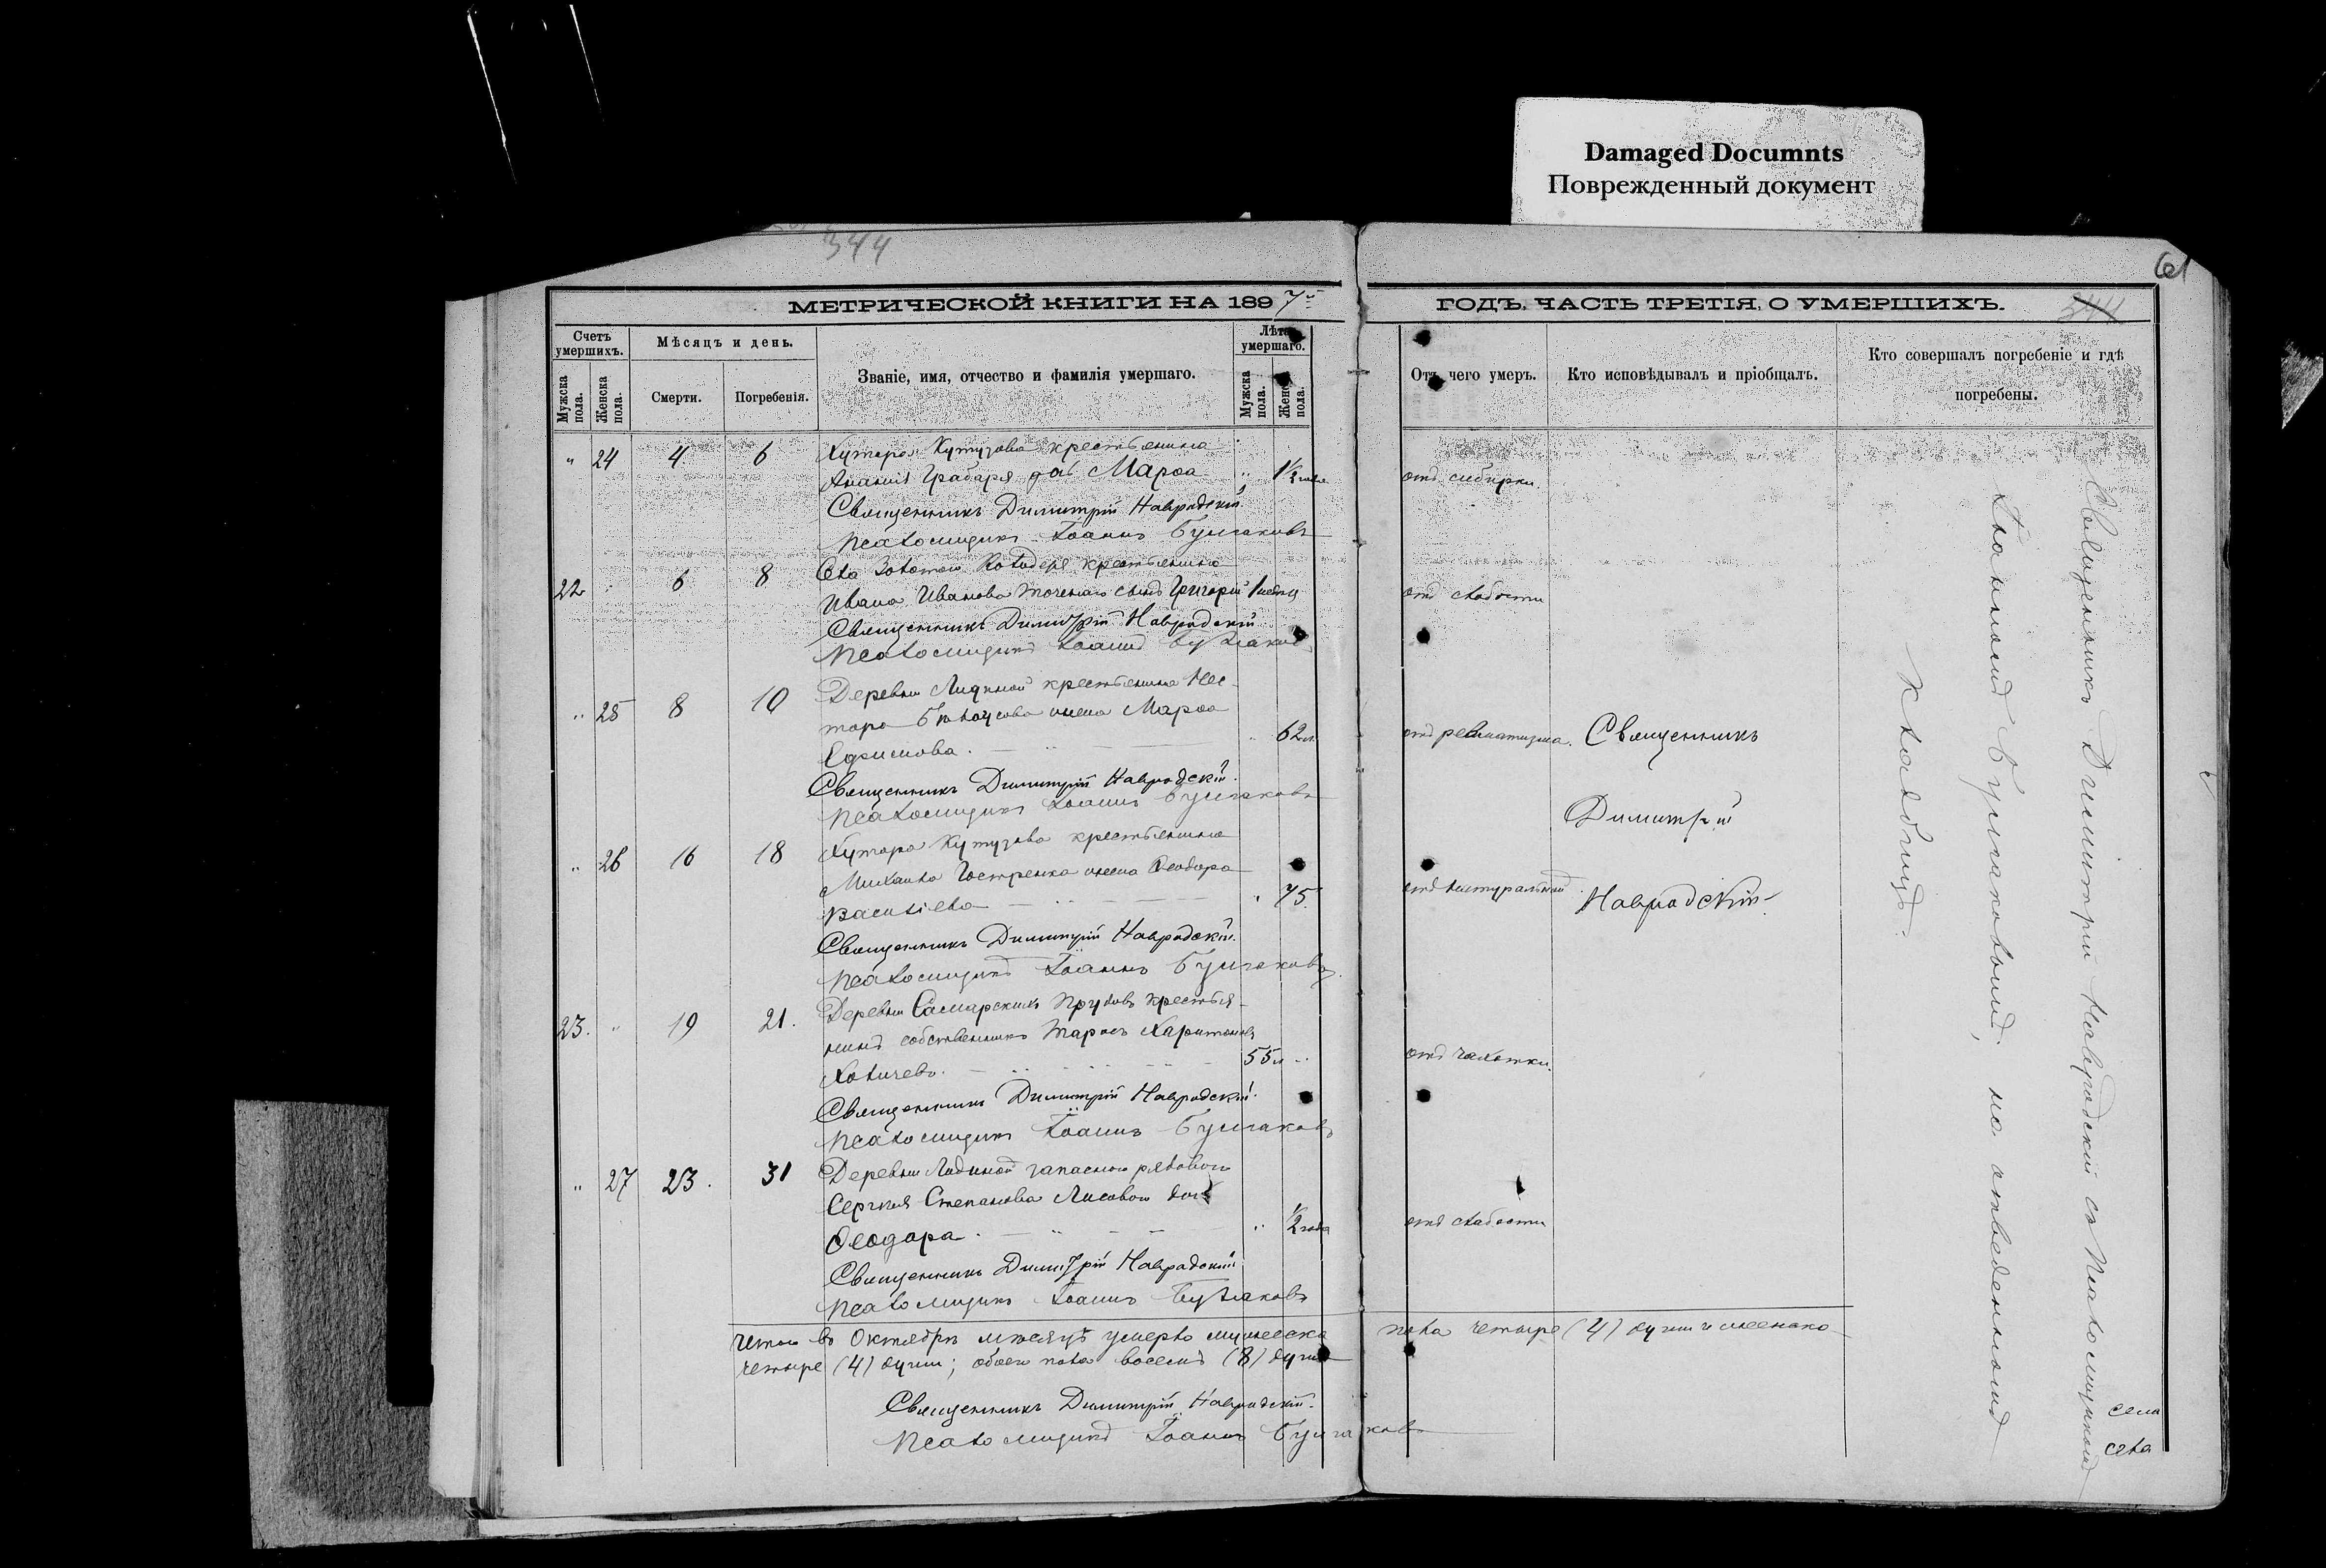 Damaged Documnts
Поврежденный документ
344
61
МЕТРИЧЕСКОЙ КНИГИ НА 1897й ГОДЪ, ЧАСТЬ ТРЕТІЯ, О УМЕРШИХЪ.
344
Счетъ умершихъ.
Мѣсяцъ и день.
Званіе, имя, отчество и фамилія умершаго.
Лѣта умершаго.
Мужска пола.
Женска пола.
Смерти.
Погребенія.
Мужска пола.
Женска пола.
Отъ чего умеръ.
Кто исповѣдывалъ и пріобщалъ.
Кто совершалъ погребеніе и гдѣ погребены.
" 24 4 6 Хутора Кутузова крестьянина
Ананія Грабаря дочь Марѳа " 1½ года отъ сибирки.
Священникъ Димитрій Навродскій
Псаломщикъ Іоаннъ Булгаковъ
22 " 6 8 Села Золотой Колодезя крестьянина
Ивана Иванова сынъ Григорій отъ слабости
Священникъ Димитрій Навродскій
Псаломщикъ Іоаннъ Булгаковъ
" 25 8 10 Деревни крестьянина Нес-
тора жена Марѳа
Ефимова. " 62 л. отъ ревматизма. Священникъ
Священникъ Димитрій Навродскій.
Псаломщикъ Іоаннъ Булгаковъ
Димитрій
" 26 16 18 Хутора Кутузова крестьянина
Михаила жена Ѳеодора
Васильева " 75. отъ натуральной Навродскій.
Священникъ Димитрій Навродскій.
Псаломщикъ Іоаннъ Булгаковъ.
23. " 19 21. Деревни Самарскихъ Прудовъ крестья-
нинъ собственникъ Тарасъ Харитоновъ
55 л. " отъ чахотки.
Священникъ Димитрій Навродскій.
Псаломщикъ Іоаннъ Булгаковъ
" 27 23. 31 Деревни запаснаго рядового
Сергія Степанова Лисового дочь
Ѳеодора. " ½ года отъ слабости
Священникъ Димитрій Навродскій
Псаломщикъ Іоаннъ Булгаковъ
Итого въ Октябрѣ мѣсяцѣ умерло мужеска пола четыре (4) души и женско-
четыре (4) души; обоего пола восемь (8) душъ
Священникъ Димитрій Навродскій.
Псаломщикъ Іоаннъ Булгаковъ
Священникъ Димитрій Навродскій съ псаломщикомъ
Іоанномъ Булгаковымъ, на отведенномъ
кладбищѣ.
села
села